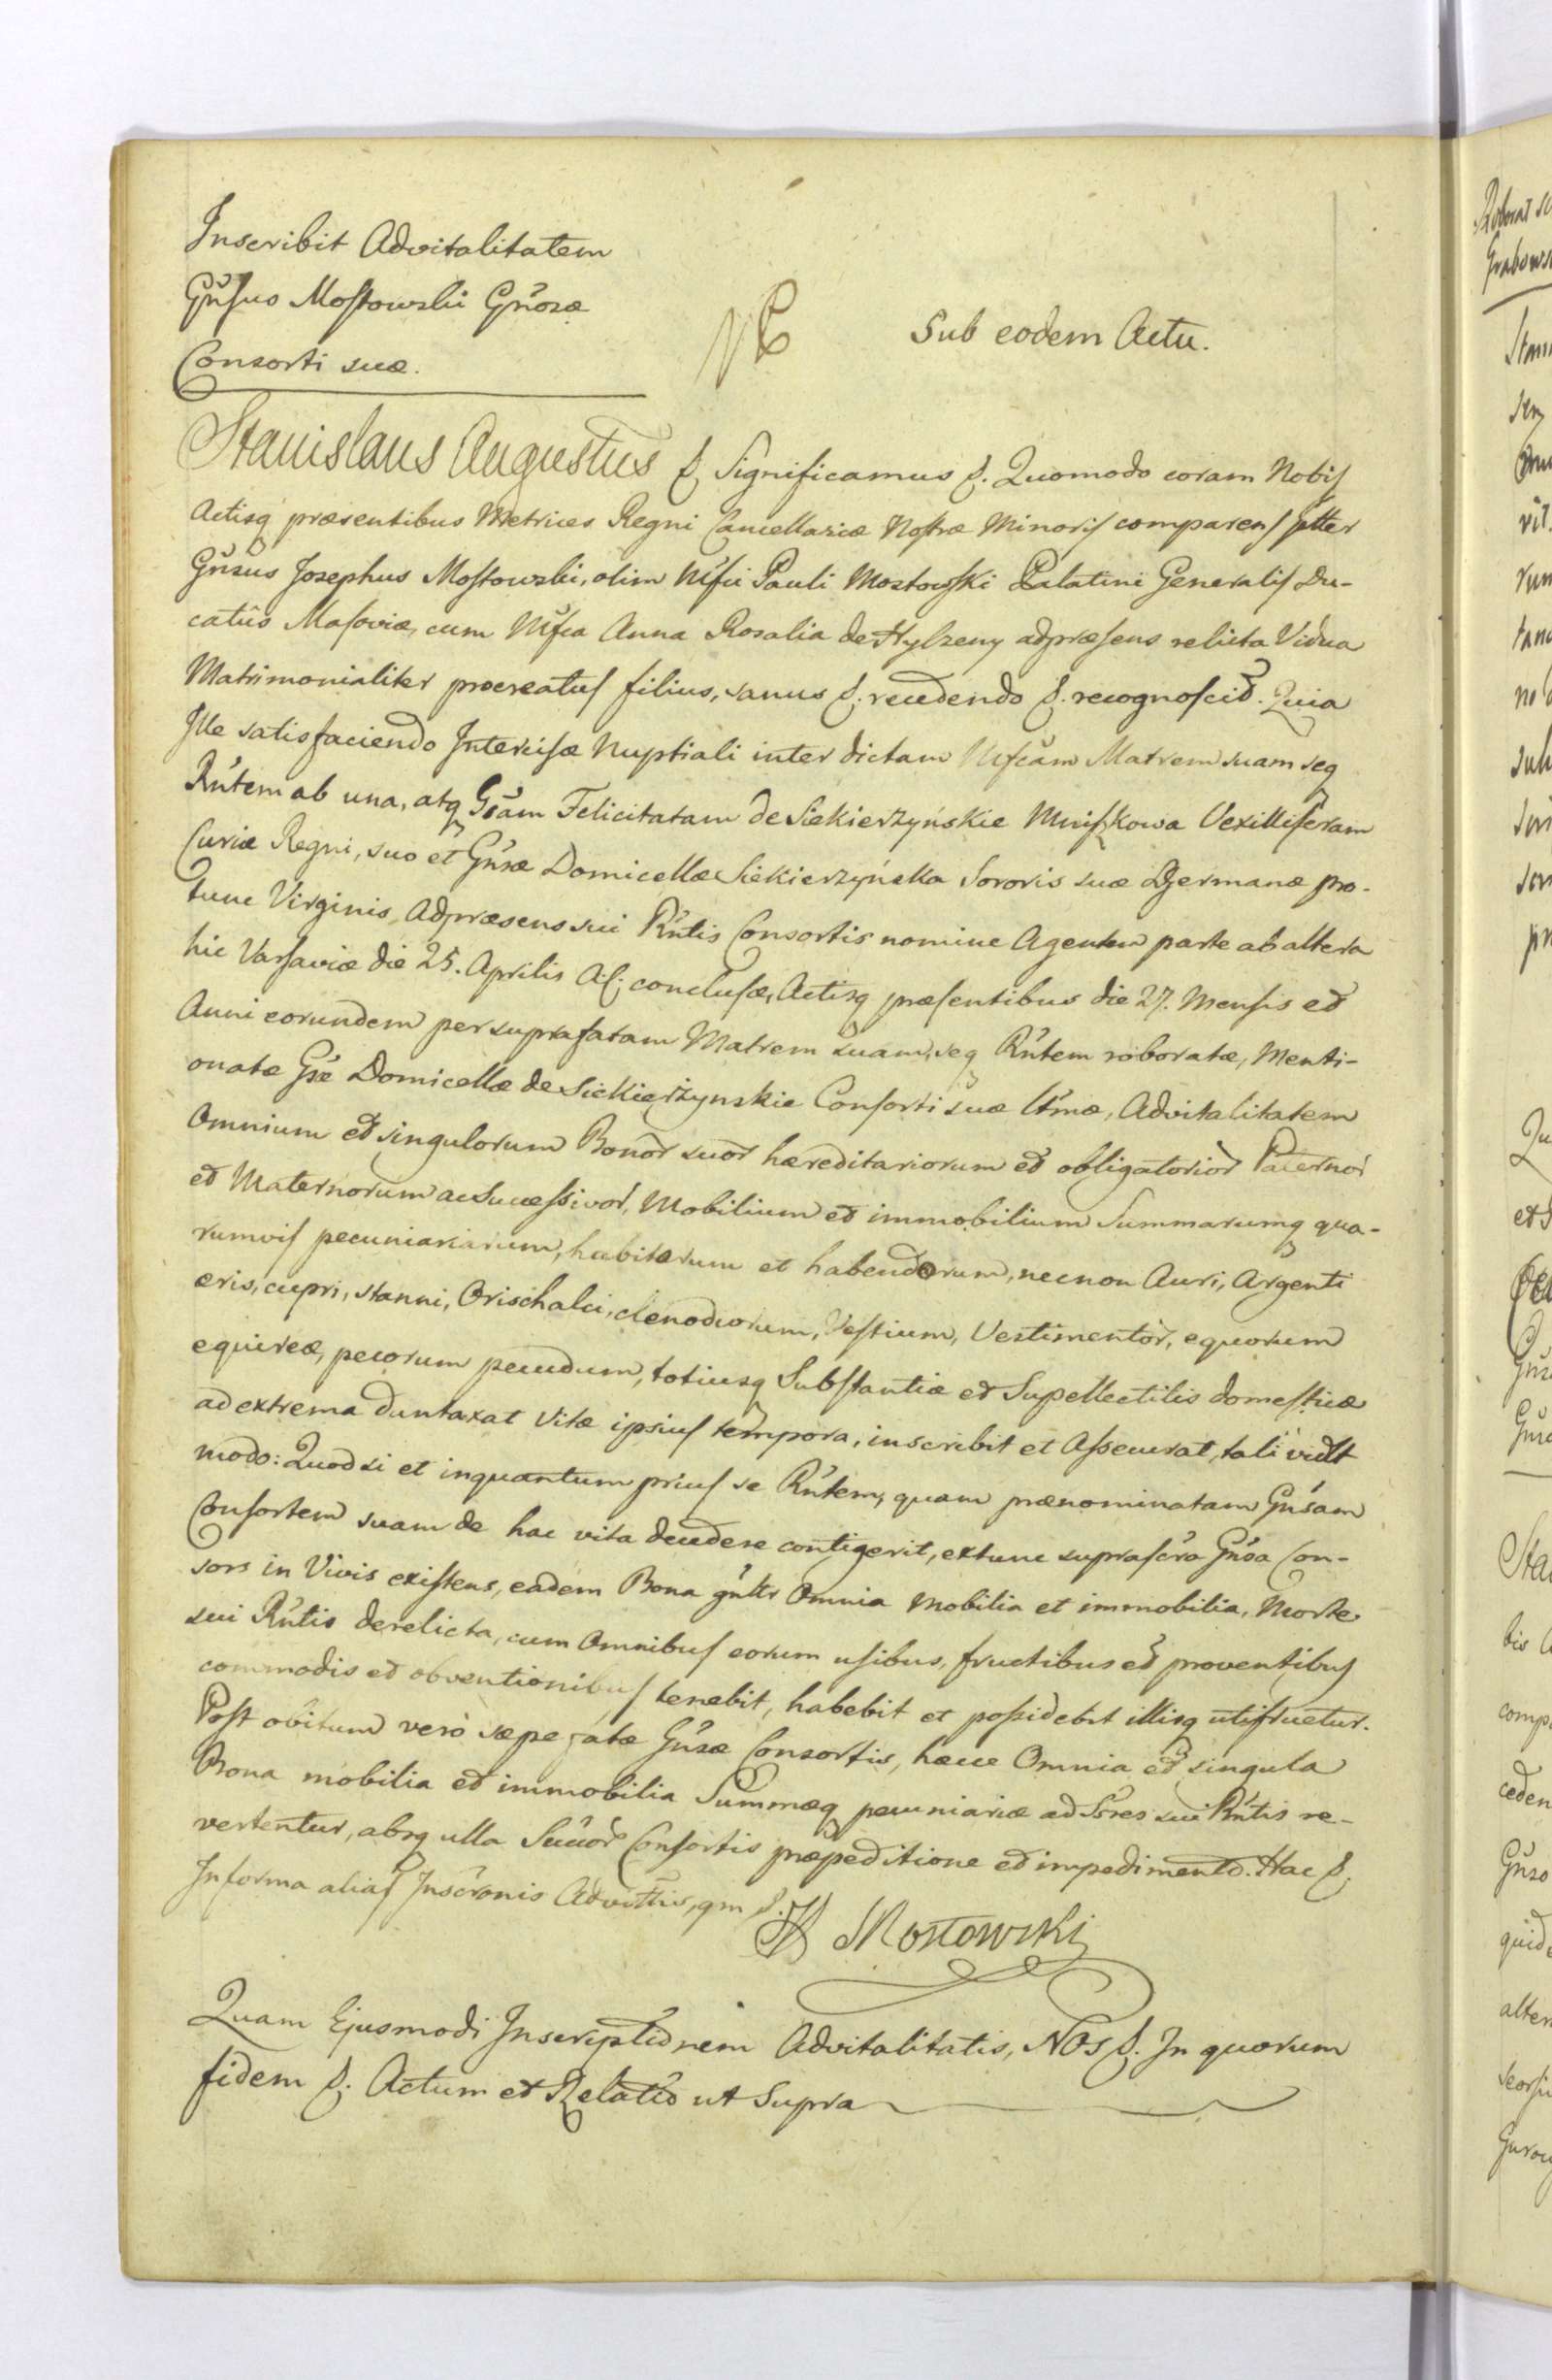 Inscribit Advitalitatem
Gnsus Mostowski Gnosæ
Consorti suæ.
Sub eodem Actu.
Stanislaus Augustus Significamus Quomodo coram Nobis
Actisq præsentibus Metrices Regni Cancellariæ Nostræ Minoris comparens ptter
Gnsus Josephus Mostowski, olim Mfci Pauli Mostowski Palatini Generalis Du-
catûs Masoviæ, cum Mfca Anna Rosalia de Hylzeny adpræsens relicta Vidua
Matrimonialiter procreatus filius, sanus recedendo recognoscit. Quia
Ille satisfaciendo Intercisæ Nuptiali inter dictam Mfcam Matrem suam seq
Rntem ab una, atq Gsam Felicitatam de Siekierzyńskie Mniszkowa Vexilliferam
Curiæ Regni, suo et Gnsæ Domicellæ Siekierzyńska Sororis suæ Germanæ pro-
tunc Virginis, Adpræsens sui Rntis Consortis nomine Agentem parte ab altera
hic Varsaviæ die 25. Aprilis conclusæ, Actisq præsentibus die 27. Mensis et
Anni eorundem per suprafatam Matrem suam, seq Rntem roboratæ, Menti-
onatæ Gsæ Domicellæ de Siekierzynskie Consorti suæ Ctmæ, Advitalitatem
Omnium et singulorum Bonor suor hæreditariorum et obligatorior Paternor
et Maternorum ac Successivor, Mobilium et immobilium Summarumq qua-
rumvis pecuniariarum, habitorum et habendorum, necnon Auri, Argenti
æris, cupri, stanni, Orischalci, clenodiorum, Vestium, Vestimentor, equorum
equireæ, pecorum pecudum, totiusq Substantiæ et Supellectilis domesticæ
ad extrema duntaxat Vitæ ipsius tempora, inscribit et Assecurat, tali vidlt
modo: Quod si et inquantum prius se Rntem, quam prænominatam Gnsam
Consortem suam de hac vita decedere contigerit, extunc suprascra Gnsa Con-
sors in Vivis existens, eadem Bona gnltr Omnia Mobilia et immobilia, Morte
sui Rntis derelicta, cum Omnibus eorum usibus, fructibus et proventibus
commodis et obventionibus tenebit, habebit et possidebit illisq utifruetur.
Post obitum verò sæpefatæ Gnsæ Consortis, hæcce Omnia et singula
Bona mobilia et immobilia Summæq pecuniariæ ad Sores sui Rntis re-
vertentur, absq ulla Succor Consortis præpeditione et impedimento. Hac
In forma alias Inscronis Advittis, qm
Mostowski
Quam Ejusmodi Inscriptionem Advitalitatis, NOs In quorum
fidem Actum et Relatio ut Supra